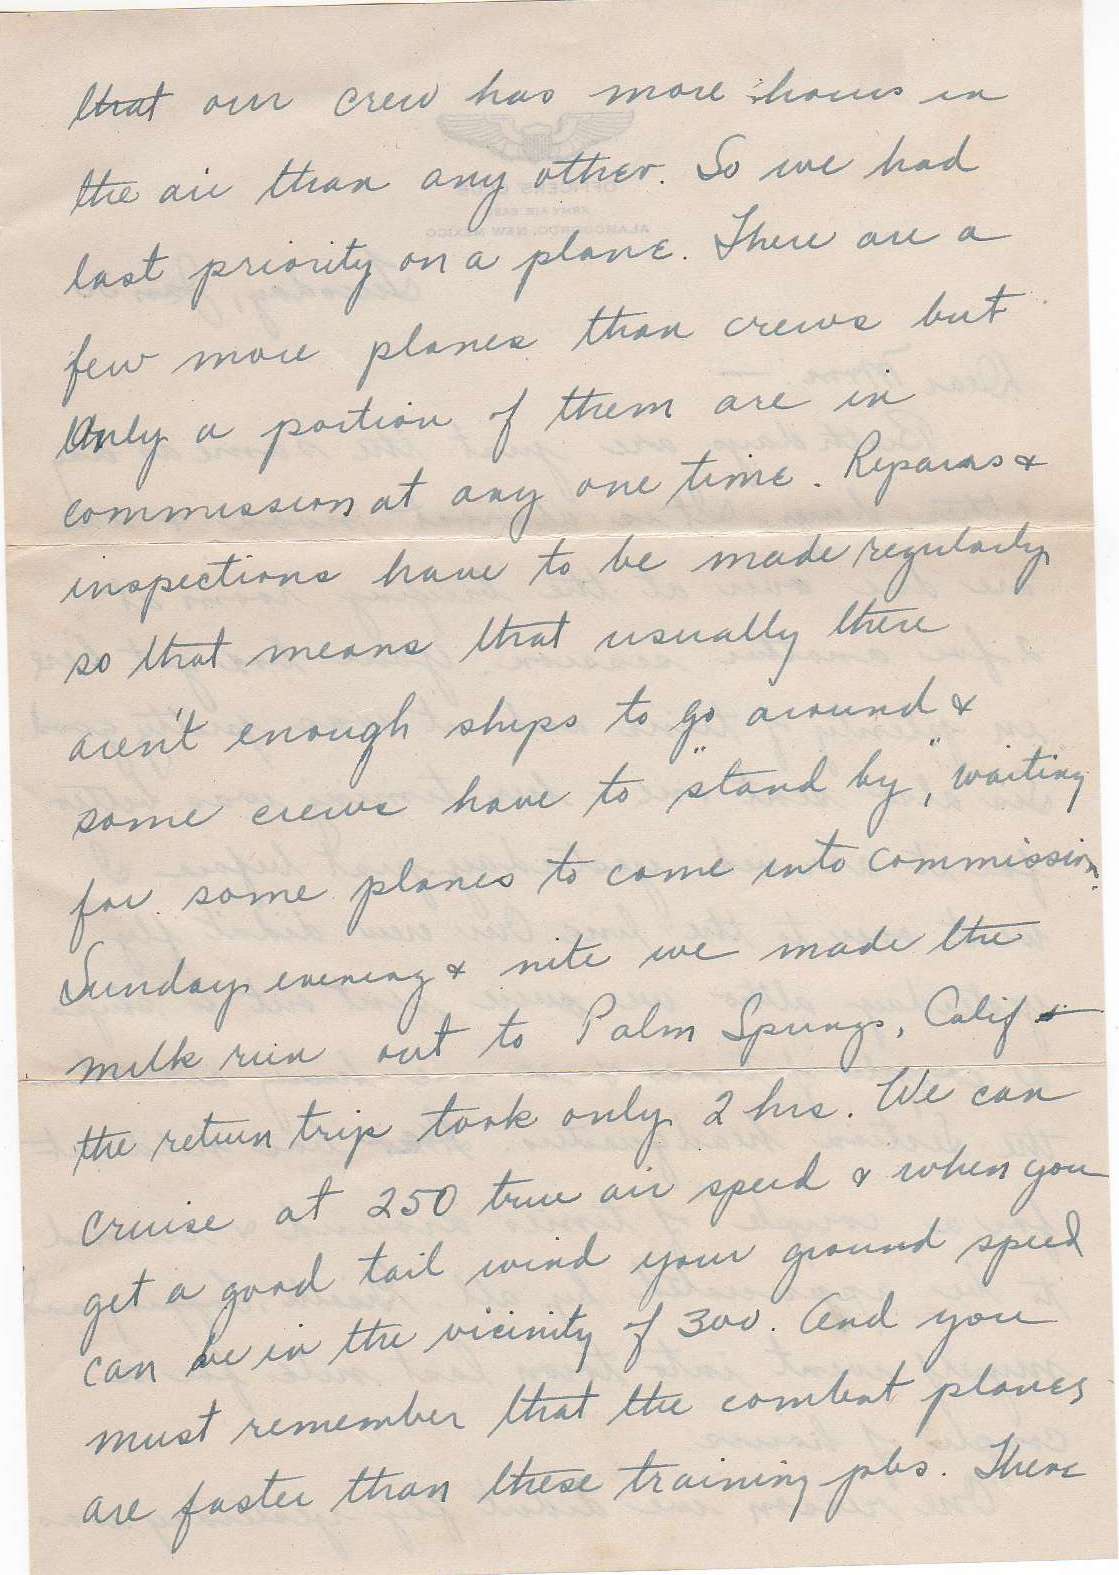 that our crew has more hours in
the air than any other. So we had
last priority on a plane. There are a
few more planes than crews but
Only a portion of them are in
commission at any one time. Repairs &
inspections have to be made regularly
so that means that usually there
aren't enough ships to go around &
some crews have to "stand by", waiting
for some planes to come into commission.
Sunday evening & nite we made the
milk run out to Palm Springs, Calif &
the return trip took only 2 hrs. We can
cruise at 250 true air speed & when you
get a good tail wind your ground speed
can be in the vicinity of 300. And you
must remember that the combat planes
are faster than these training jobs. There